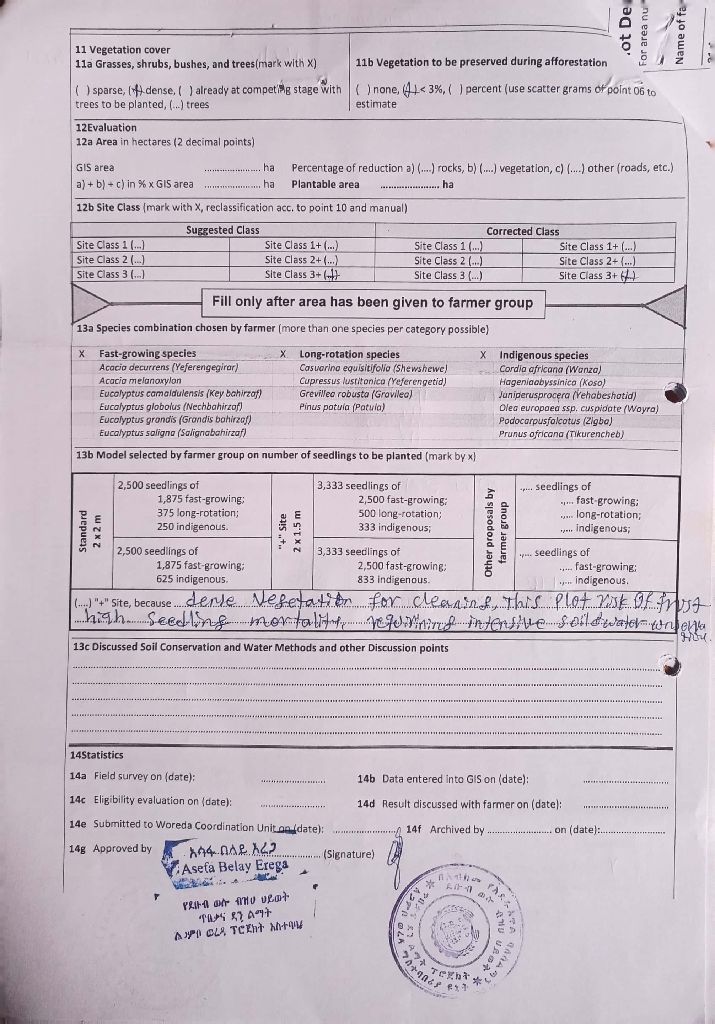 ot De
For area nu
Name of fa
11 Vegetation cover
11a Grasses, shrubs, bushes, and trees(mark with X)
( ) sparse, (X) dense, ( ) already at competing stage with trees to be planted, (...) trees
11b Vegetation to be preserved during afforestation
( ) none, (X) < 3%, ( ) percent (use scatter grams of point 06 to estimate
12Evaluation
12a Area in hectares (2 decimal points)
GIS area .................... ha Percentage of reduction a) (....) rocks, b) (....) vegetation, c) (....) other (roads, etc.)
a) + b) + c) in % x GIS area .................... ha Plantable area .................... ha
12b Site Class (mark with X, reclassification acc. to point 10 and manual)
Suggested Class Corrected Class
Site Class 1 (...) Site Class 1+ (...) Site Class 1 (...) Site Class 1+ (...)
Site Class 2 (...) Site Class 2+ (...) Site Class 2 (...) Site Class 2+ (...)
Site Class 3 (...) Site Class 3+ (X) Site Class 3 (...) Site Class 3+ (X)
Fill only after area has been given to farmer group
13a Species combination chosen by farmer (more than one species per category possible)
X Fast-growing species X Long-rotation species X Indigenous species
Acacia decurrens (Yeferengegirar) Casuarina equisitifolia (Shewshewe) Cordia africana (Wanza)
Acacia melanoxylon Cupressus lustitanica (Yeferengetid) Hageniaabyssinica (Koso)
Eucalyptus camaldulensis (Key bahirzaf) Grevillea robusta (Gravilea) Juniperusprocera (Yehabeshatid)
Eucalyptus globolus (Nechbahirzaf) Pinus patula (Patula) Olea europaea ssp. cuspidate (Wayra)
Eucalyptus grandis (Grandis bahirzaf) Podocarpusfalcatus (Zigba)
Eucalyptus saligna (Salignabahirzaf) Prunus africana (Tikurencheb)
13b Model selected by farmer group on number of seedlings to be planted (mark by x)
Standard
2 x 2 m
2,500 seedlings of
1,875 fast-growing;
375 long-rotation;
250 indigenous.
2,500 seedlings of
1,875 fast-growing;
625 indigenous.
"+" Site
2 x 1.5 m
3,333 seedlings of
2,500 fast-growing;
500 long-rotation;
333 indigenous;
3,333 seedlings of
2,500 fast-growing;
833 indigenous.
Other proposals by
farmer group
.,... seedlings of
.,... fast-growing;
.,... long-rotation;
.,... indigenous;
.,... seedlings of
.,... fast-growing;
.,... indigenous.
(....) "+" Site, because dense Vegetation for cleaning, This Plot risk Of frost
high Seedling mortality, requirining intensive soil & water
13c Discussed Soil Conservation and Water Methods and other Discussion points
14Statistics
14a Field survey on (date): .................... 14b Data entered into GIS on (date): ....................
14c Eligibility evaluation on (date): .................... 14d Result discussed with farmer on (date): ....................
14e Submitted to Woreda Coordination Unit on (date): .................... 14f Archived by .................... on (date):....................
14g Approved by አሳፋ በላይ እረጋ (Signature)
Asefa Belay Erega
የደቡብ ወሎ ብዝሀ ህይወት
ጥበቃና ደን ልማት
ፕሮጀክት አስተባባሪ